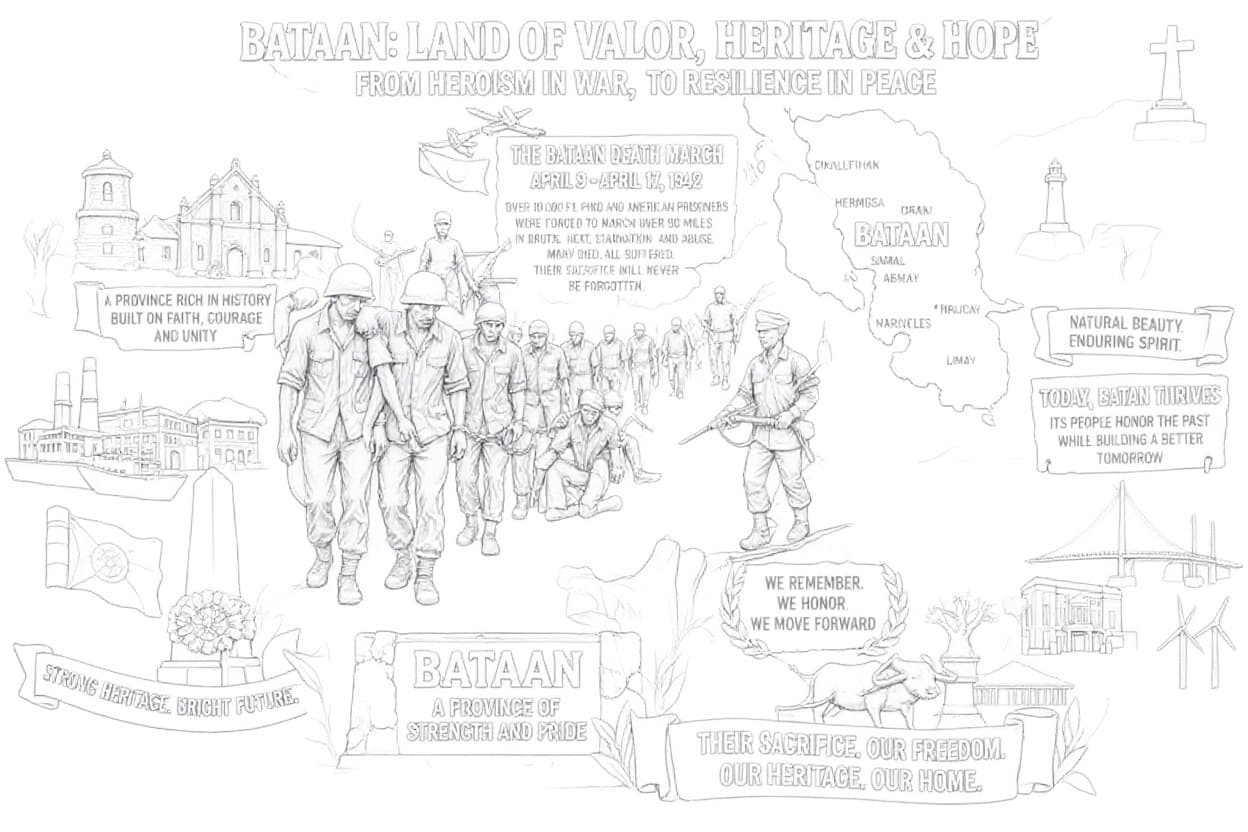 BATAAN: LAND OF VALOR, HERITAGE & HOPE
FROM HEROISM IN WAR, TO RESILIENCE IN PEACE
THE BATAAN DEATH MARCH
APRIL 9 - APRIL 17, 1942
AND AMERICAN PRISONERS
WERE FORCED TO MARCH OVER 90 MILES
IN BRUTAL HEAT, STARVATION AND ABUSE.
MANY DIED, ALL SUFFERED.
THEIR SACRIFICE WILL NEVER
BE FORGOTTEN.
HERMOSA
ORANI
BATAAN
SAMAL
ABMAY
MARIVELES
LIMAY
A PROVINCE RICH IN HISTORY
BUILT ON FAITH, COURAGE
AND UNITY
NATURAL BEAUTY.
ENDURING SPIRIT.
TODAY, BATAN THRIVES
ITS PEOPLE HONOR THE PAST
WHILE BUILDING A BETTER
TOMORROW
WE REMEMBER.
WE HONOR.
WE MOVE FORWARD
STRONG HERITAGE. BRIGHT FUTURE.
BATAAN
A PROVINCE OF
STRENGTH AND PRIDE
THEIR SACRIFICE. OUR FREEDOM.
OUR HERITAGE. OUR HOME.